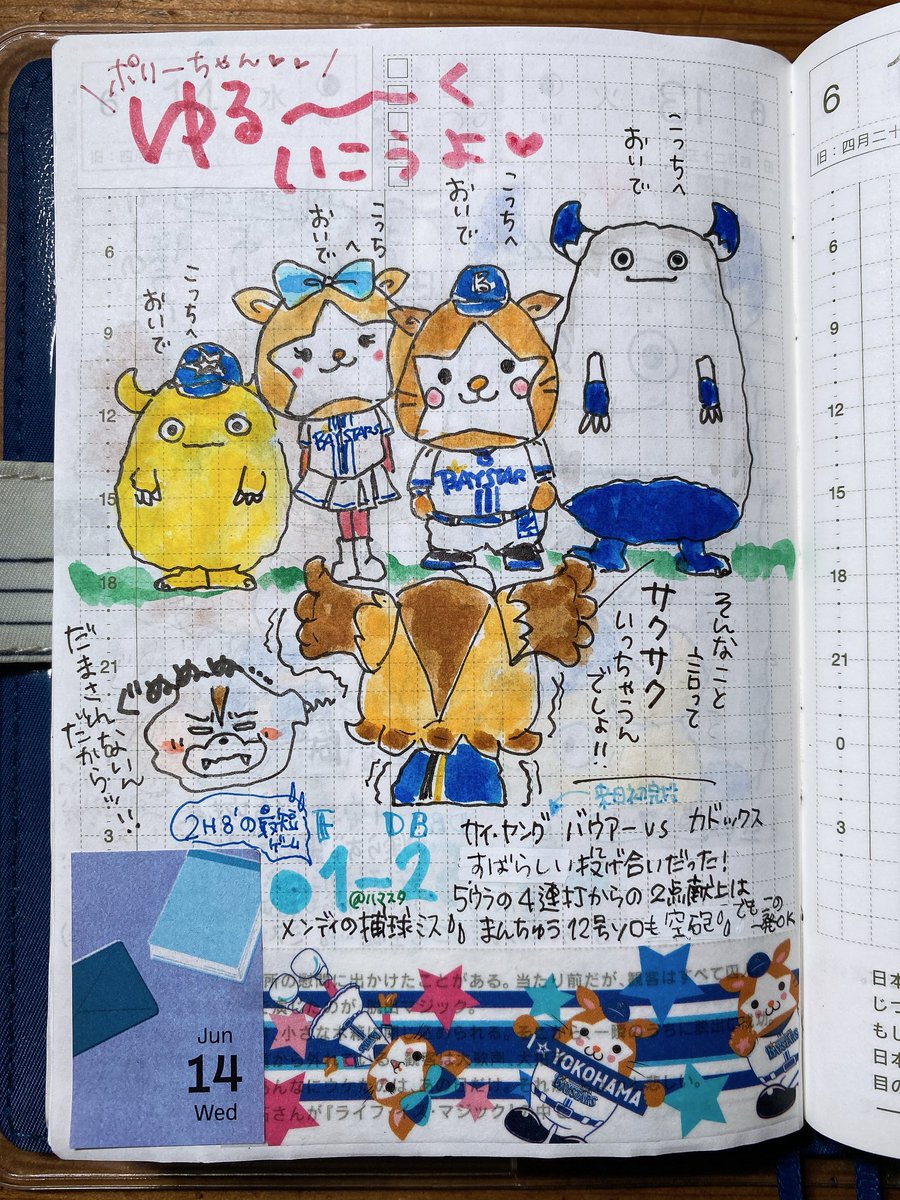 ポリーちゃん♥♥!
ゆる〜く
いこうよ♥
こっちへ
おいで
こっちへ
おいで
こっちへ
おいで
こっちへ
おいで
B
BAYSTARS
BAYSTAR
6
9
12
15
18
21
3
そんなこと
言って
サクサク
いっちゃうん
でしょ!!
ぐぬぬぬぬ...
だまさん
ないん
だから〜ッ!!
2H8'の最短
ゲーム
F DB
●1-2
@ハマスタ
来日初完投
サイ・ヤング バウアー vs カドックス
すばらしい投げ合いだった!
5ウラの4連打からの2点献上は
メンディの捕球ミス まんちゅう12号ソロも空砲
でもこの
一発OK
Jun
14
Wed
I★YOKOHAMA
6
旧:四月二十
6
9
12
15
18
21
0
3
日本
じつ
もし
日本
目の